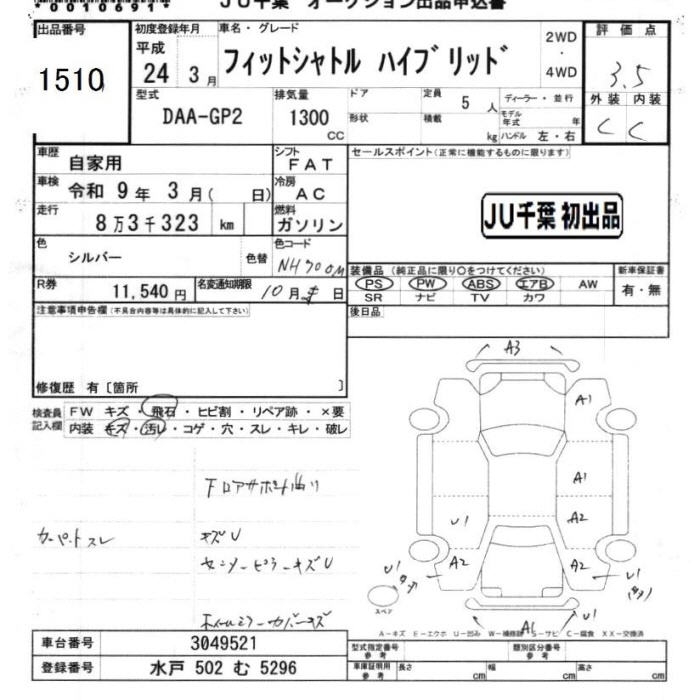 00010691
JU千葉 オークション出品申込書
出品番号
1510
初度登録年月
平成
24 3月
車名・グレード
フィットシャトル ハイブリッド
2WD
・
4WD
評価点
3.5
外装 内装
C C
型式
DAA-GP2
排気量
1300
CC
ドア
形状
定員 5 人
積載 kg
ディーラー・並行
モデル年式 年
ハンドル 左・右
車歴 自家用
シフト FAT
セールスポイント(正常に機能するものに限ります)
車検 令和 9年 3月( 日)
冷房 AC
走行 8万3千323 km
燃料 ガソリン
JU千葉 初出品
色 シルバー 色替
色コード NH700M
装備品 (純正品に限り○をつけてください)
新車保証書
PS PW ABS エアB AW
SR ナビ TV カワ
有・無
R券 11,540円
名変通知期限 10月 日
後日品
注意事項申告欄(不具合内容等は具体的に記入して下さい)
修復歴 有〔箇所 〕
検査員記入欄
FW キズ・飛石・ヒビ割・リペア跡・×要
内装 キズ・汚レ・コゲ・穴・スレ・キレ・破レ
フロアサポート曲り
カーペットスレ
キズU
センターピラーキズU
A3
A1
A1
U1 A2
U1 A2 A2 U1
A1 U1
スペア
A-キズ E-エクボ U-凹み W-補修跡 S-サビ C-腐食 XX-交換済
車台番号 3049521
登録番号 水戸 502 む 5296
型式指定番号
参考
類別区分番号
参考
車庫証明用
参考
長さ cm 幅 cm 高さ cm